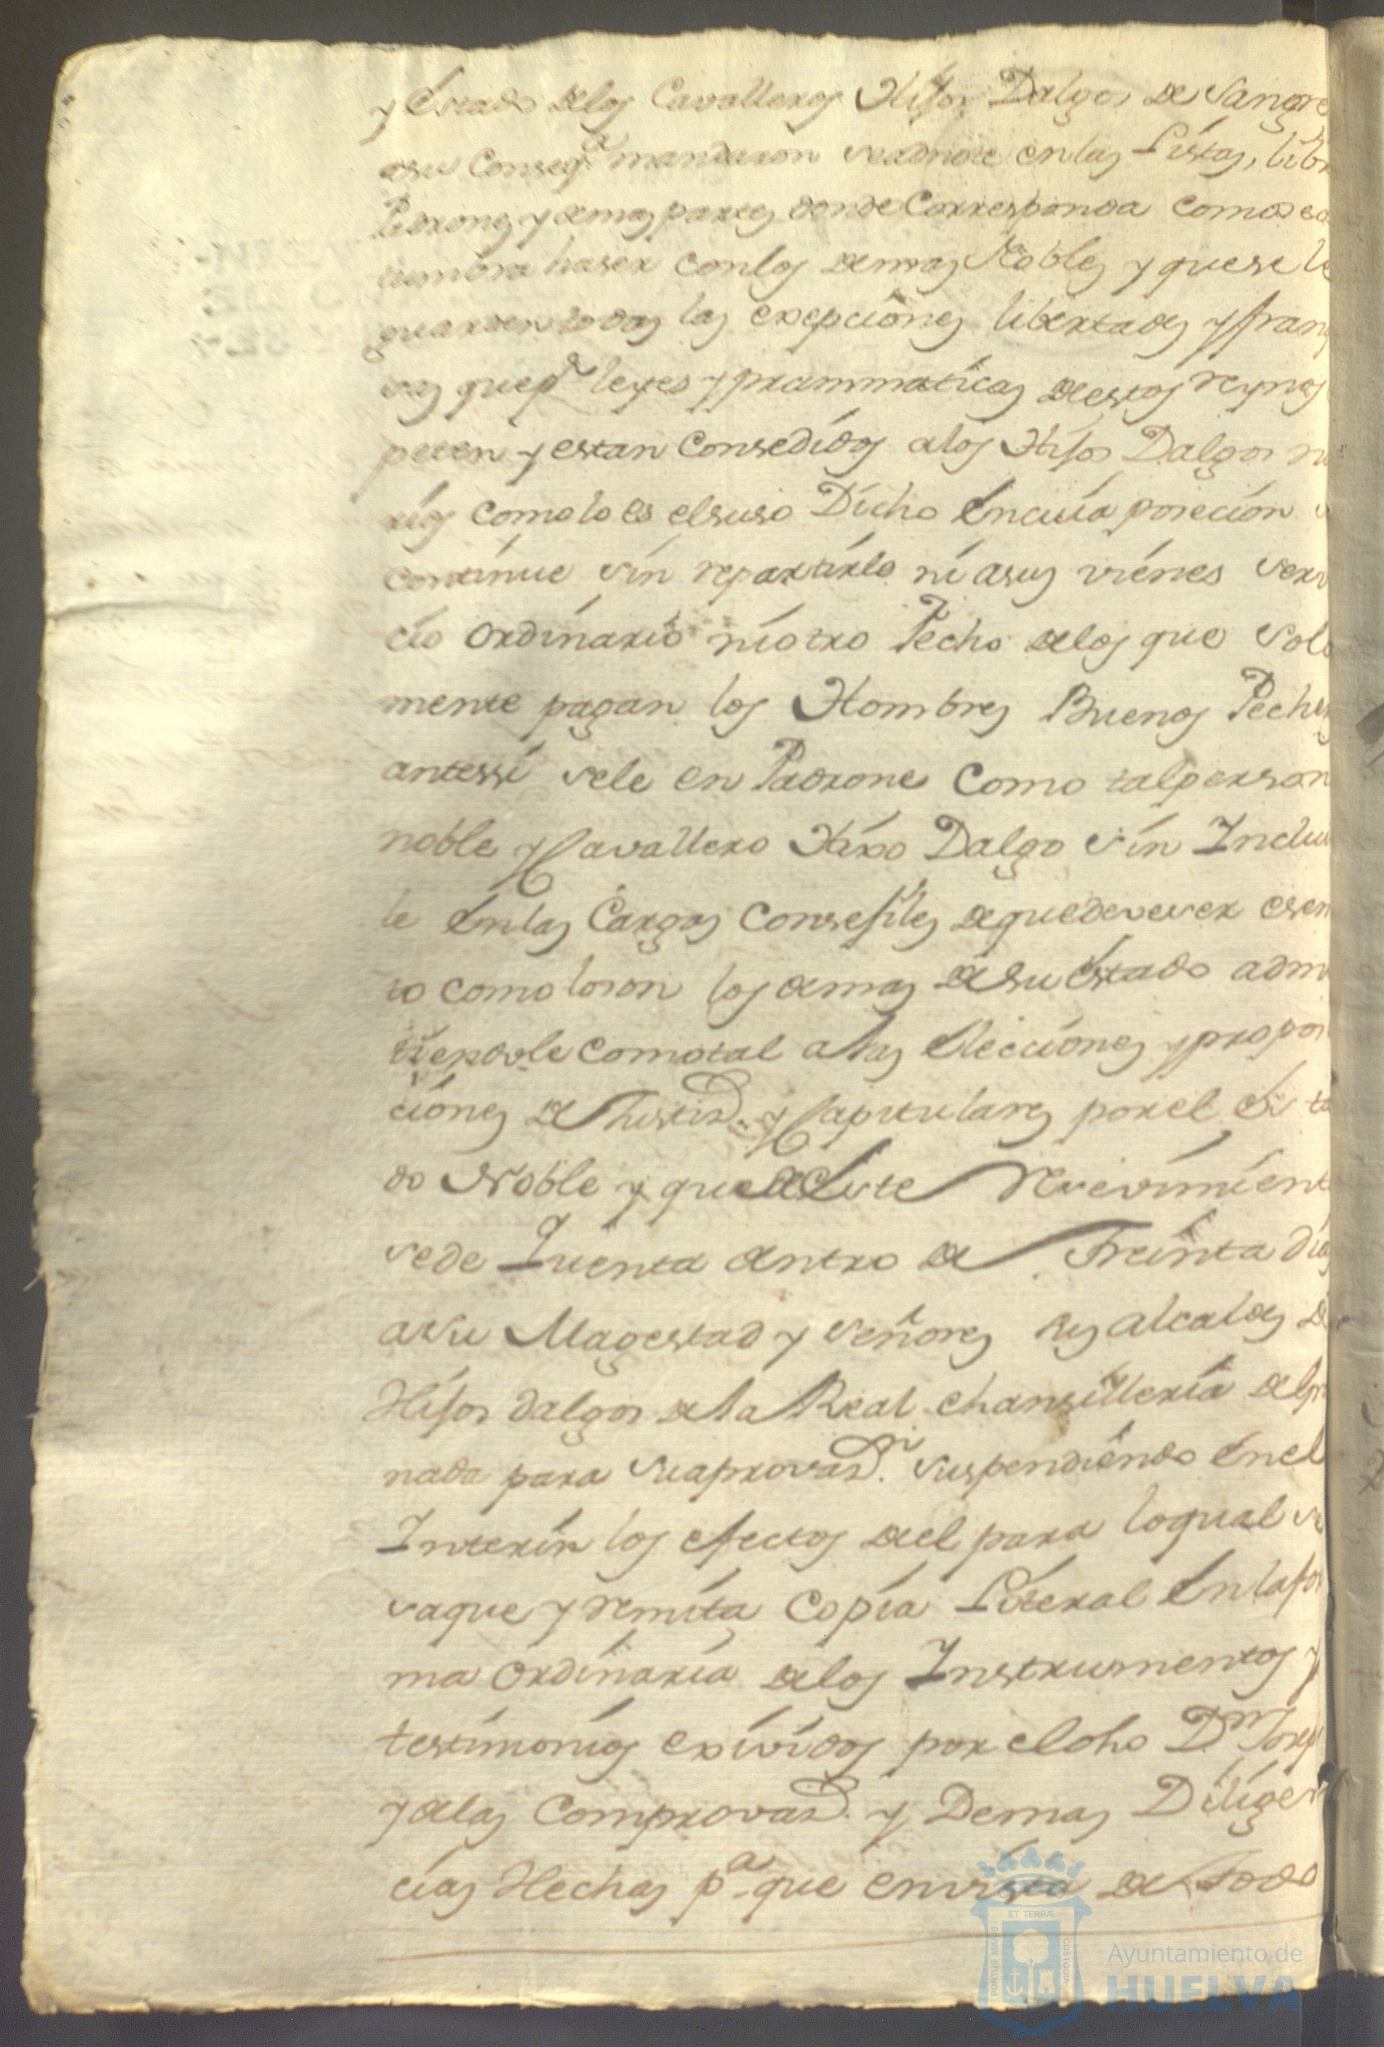 y Estado delos Cavalleros Hijos Dalgos de Sangre
asu Conseqª mandaron seadnote enlas Listas, libr
Padrones y demas partes donde Corresponda como se a
tumbra haser conlos demas Nobles y quese le
guarden todas las exepciones libertades y fran
sas que pr leyes y prammaticas destos reynos
peten y estan Consedidos alos Hijos Dalgos no
rios como lo es elsuso Dicho Encuia posecion s
continue sin repartirle ni asus vienes serv
cio ordinario niotro Pecho delos que Sola
mente pagan los Hombres Buenos Peche
antessi sele en Padrone Como talperson
noble y Cavallero Hixo Dalgo sin Inclui
le Enlas Cargas Consejiles dequedeveser esen
to como loson los demas desu Estado admi
tiendole comotal alas Elecciones ypropoci
ciones de Justisa. y Capitulares porel Esta
do Noble y quedeEste Resevimient
sede Quenta dentro de Treinta dias
asu Magestad y señores sus alcaldes de
Hijos dalgos dela Real chansilleria deGra
nada para suaprovasn. suspendiendo Enel
Interin los efectos del para loqual se
saque y remita Copia Literal Enlafor
ma ordinaria delos Instrumentos y
testimonios exividos por eldho Dn Joseph
y delas Comprovas. y Demas Diligen
cias Hechas pª que envista de todo
PORTUS MARIS ET TERRAE CUSTODIA
Ayuntamiento de
HUELVA